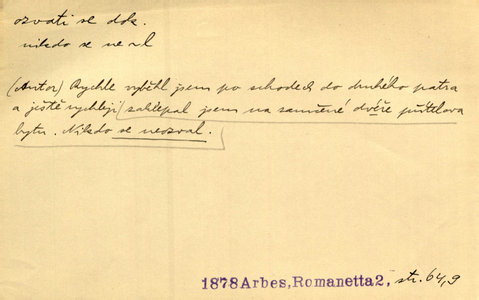 ozvati se dok.
nikdo se neozval
(Autor) Rychle vyběhl jsem po schodech do druhého patra
a ještě rychleji zaklepal jsem na zamčené dvéře přítelova
bytu. Nikdo se neozval.
1878 Arbes, Romanetta 2, str. 64,9